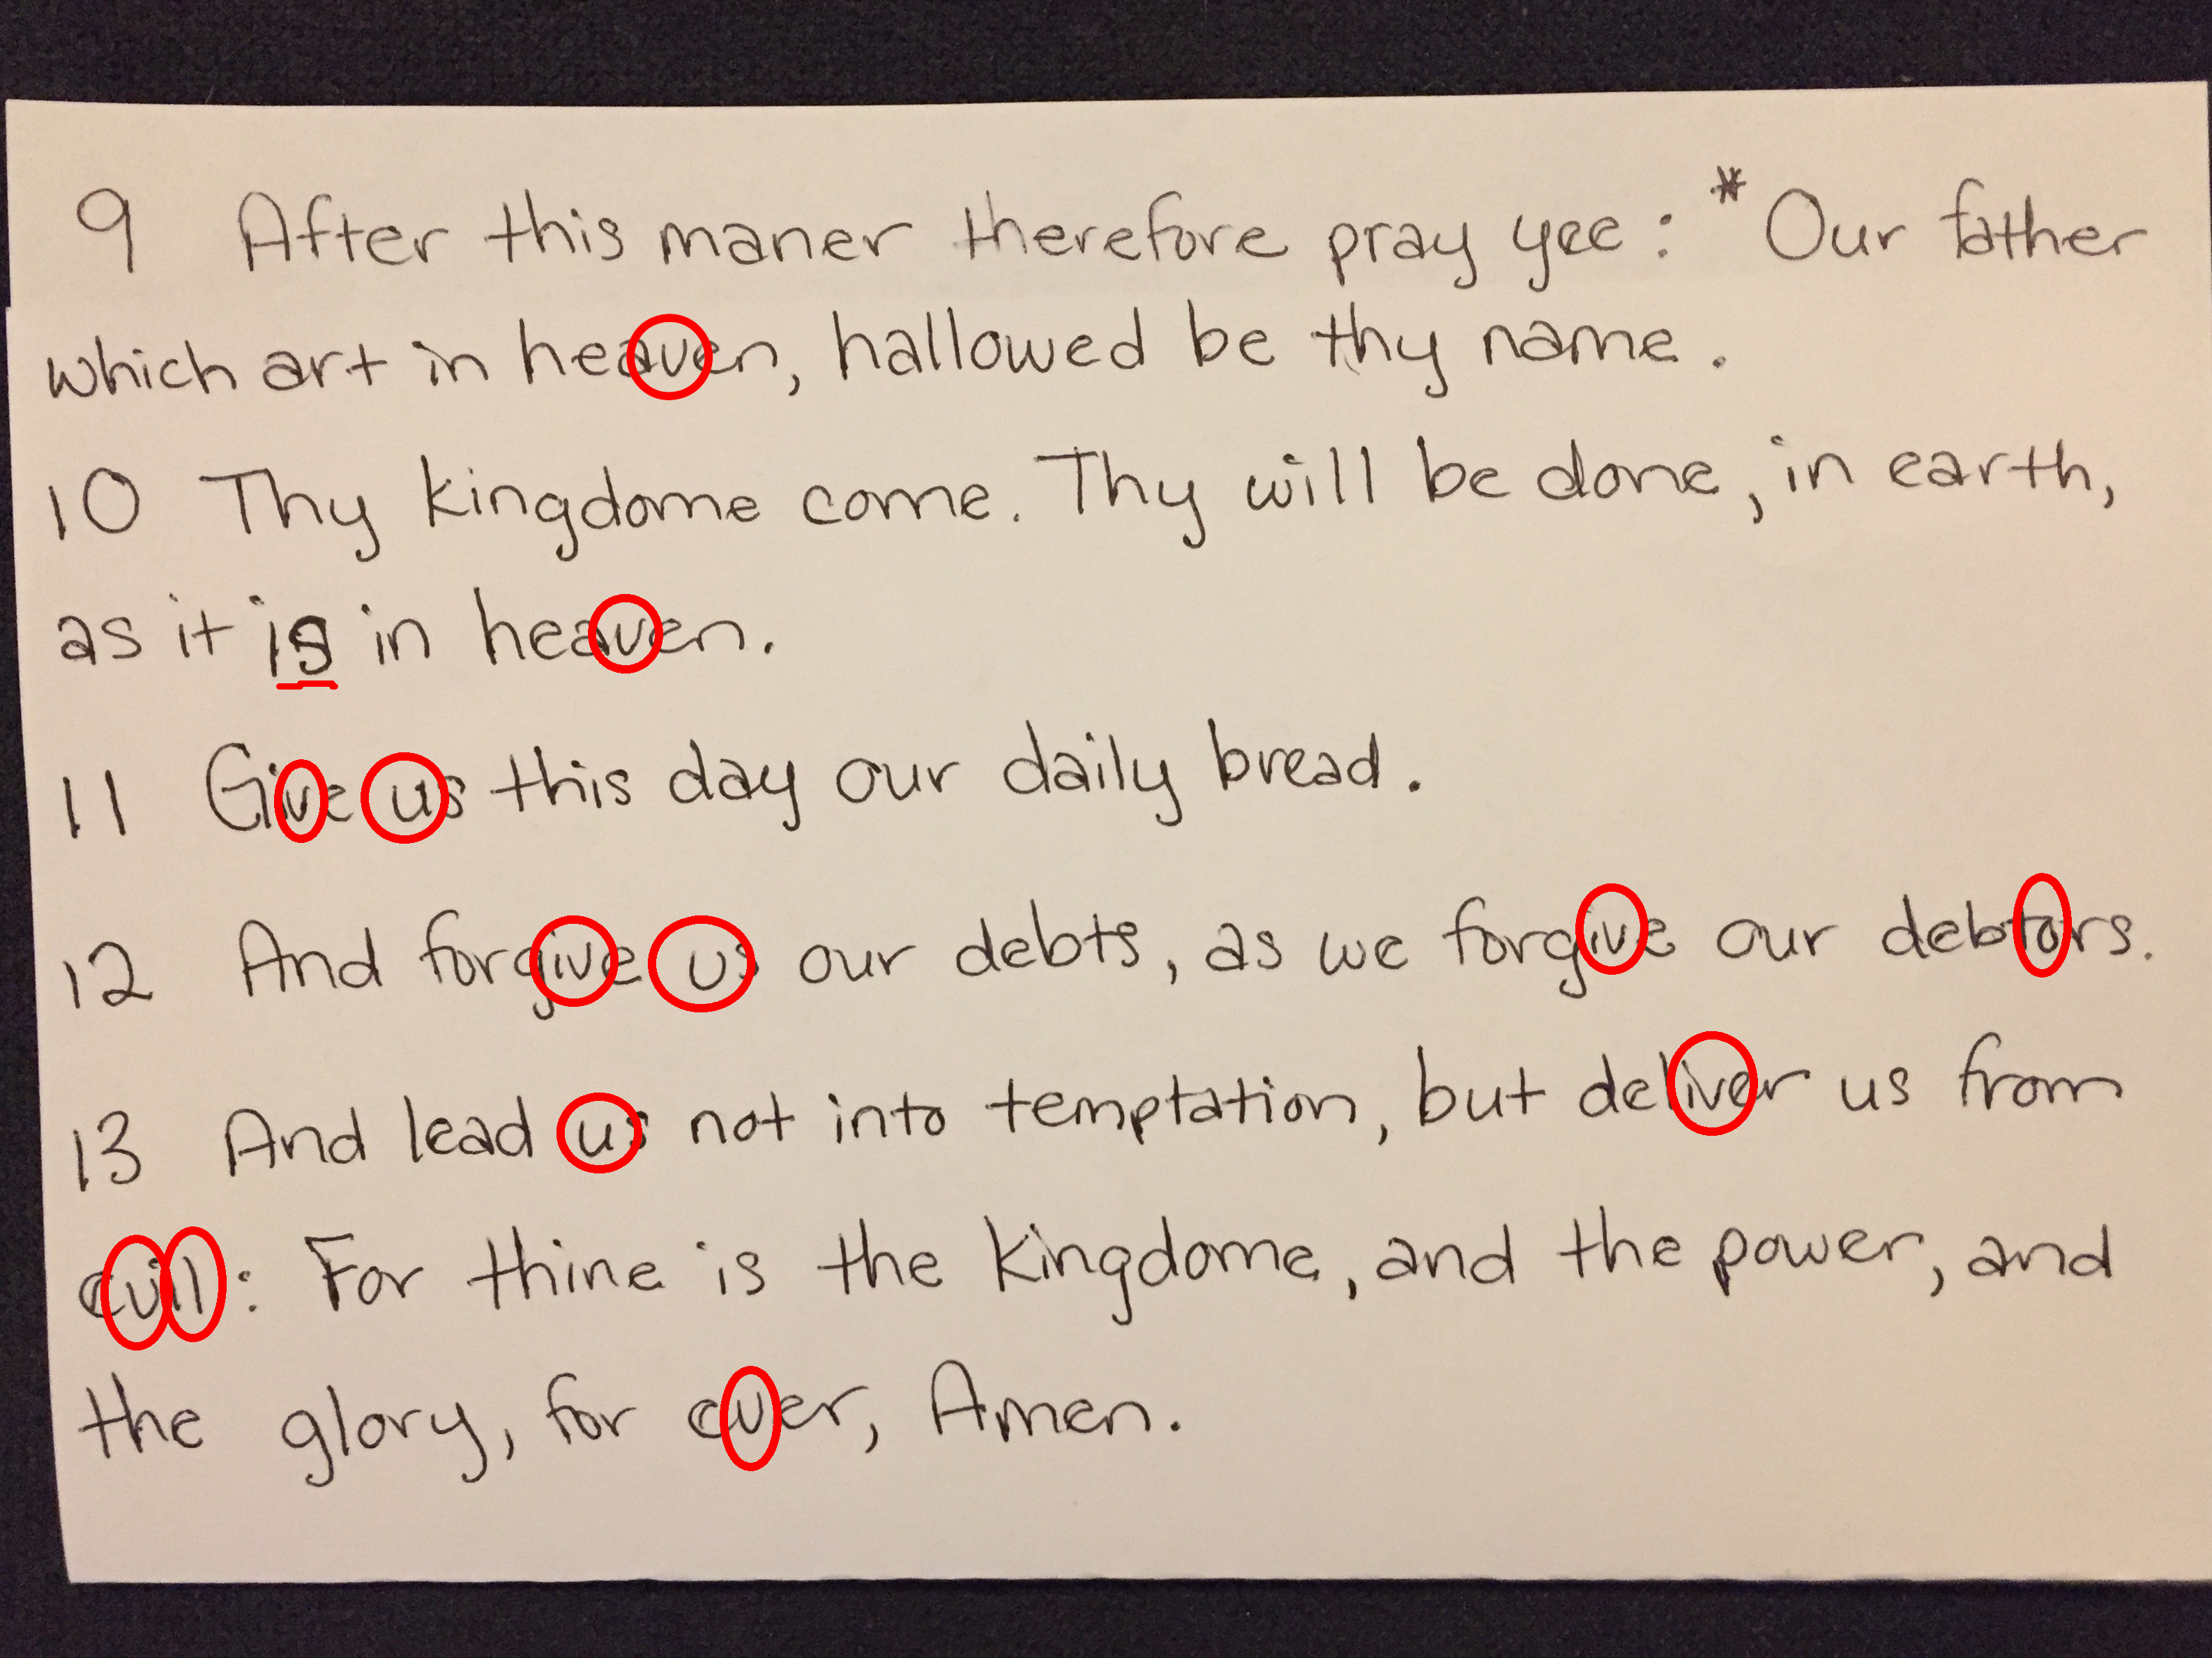 9 After this maner therefore pray yee: *Our father
which art in heaven, hallowed be thy name.
10 Thy kingdome come. Thy will be done, in earth,
as it is in heaven.
11 Give us this day our daily bread.
12 And forgive us our debts, as we forgive our debtors.
13 And lead us not into temptation, but deliver us from
evill: For thine is the kingdome, and the power, and
the glory, for ever, Amen.